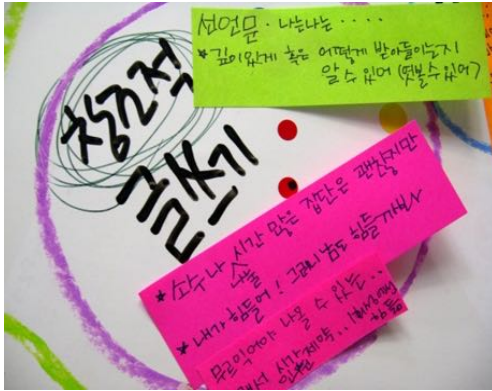 창조적
글쓰기
선언문. 나는 나는 ....
★ 깊이있게 혹은 어떻게 받아들이는지
알 수 있어 (엿볼 수 있어)
★ 소수나 시간 많은 집단은 괜찮지만
나눌
★ 내가 힘들어! 그래서 남도 힘들까봐
무르익어야 나올 수 있는..
시간제약..